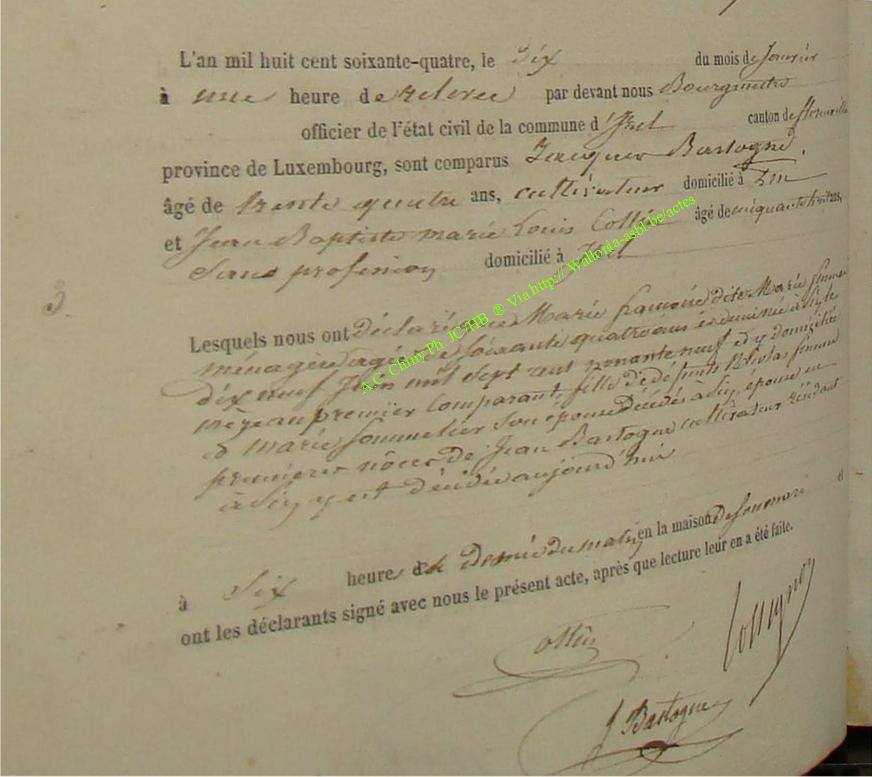 L'an mil huit cent soixante-quatre, le dix du mois de Janvier
à une heure de relevée par devant nous Bourgmestre
officier de l'état civil de la commune d'Izel canton de Florenville
province de Luxembourg, sont comparus Jacques Bastogne,
âgé de trente quatre ans, cultivateur domicilié à
et Jean Baptiste marie Louis Collin âgé de cinquante huit ans,
Sans profession domicilié à Izel
Lesquels nous ont déclaré que Marie françoise dite Marie
ménagère agée de soixante quatre ans
dix neuf Juin mil sept cent nonante neuf et y domiciliée
mère au premier Comparant, fille de défunts Nicolas
& marie Sommelier son épouse Décédés à épouse en
premieres nôces de Jean Bastogne cultivateur résidant
à y est décédée aujourd'hui
à Six heures & demie du matin en la maison de son mari et
ont les déclarants signé avec nous le présent acte, après que lecture leur en a été faite.
Collin
J Bastogne
A.C. Chiny Ph. JC HB ® Via http://Wallonia-asbl.be/actes